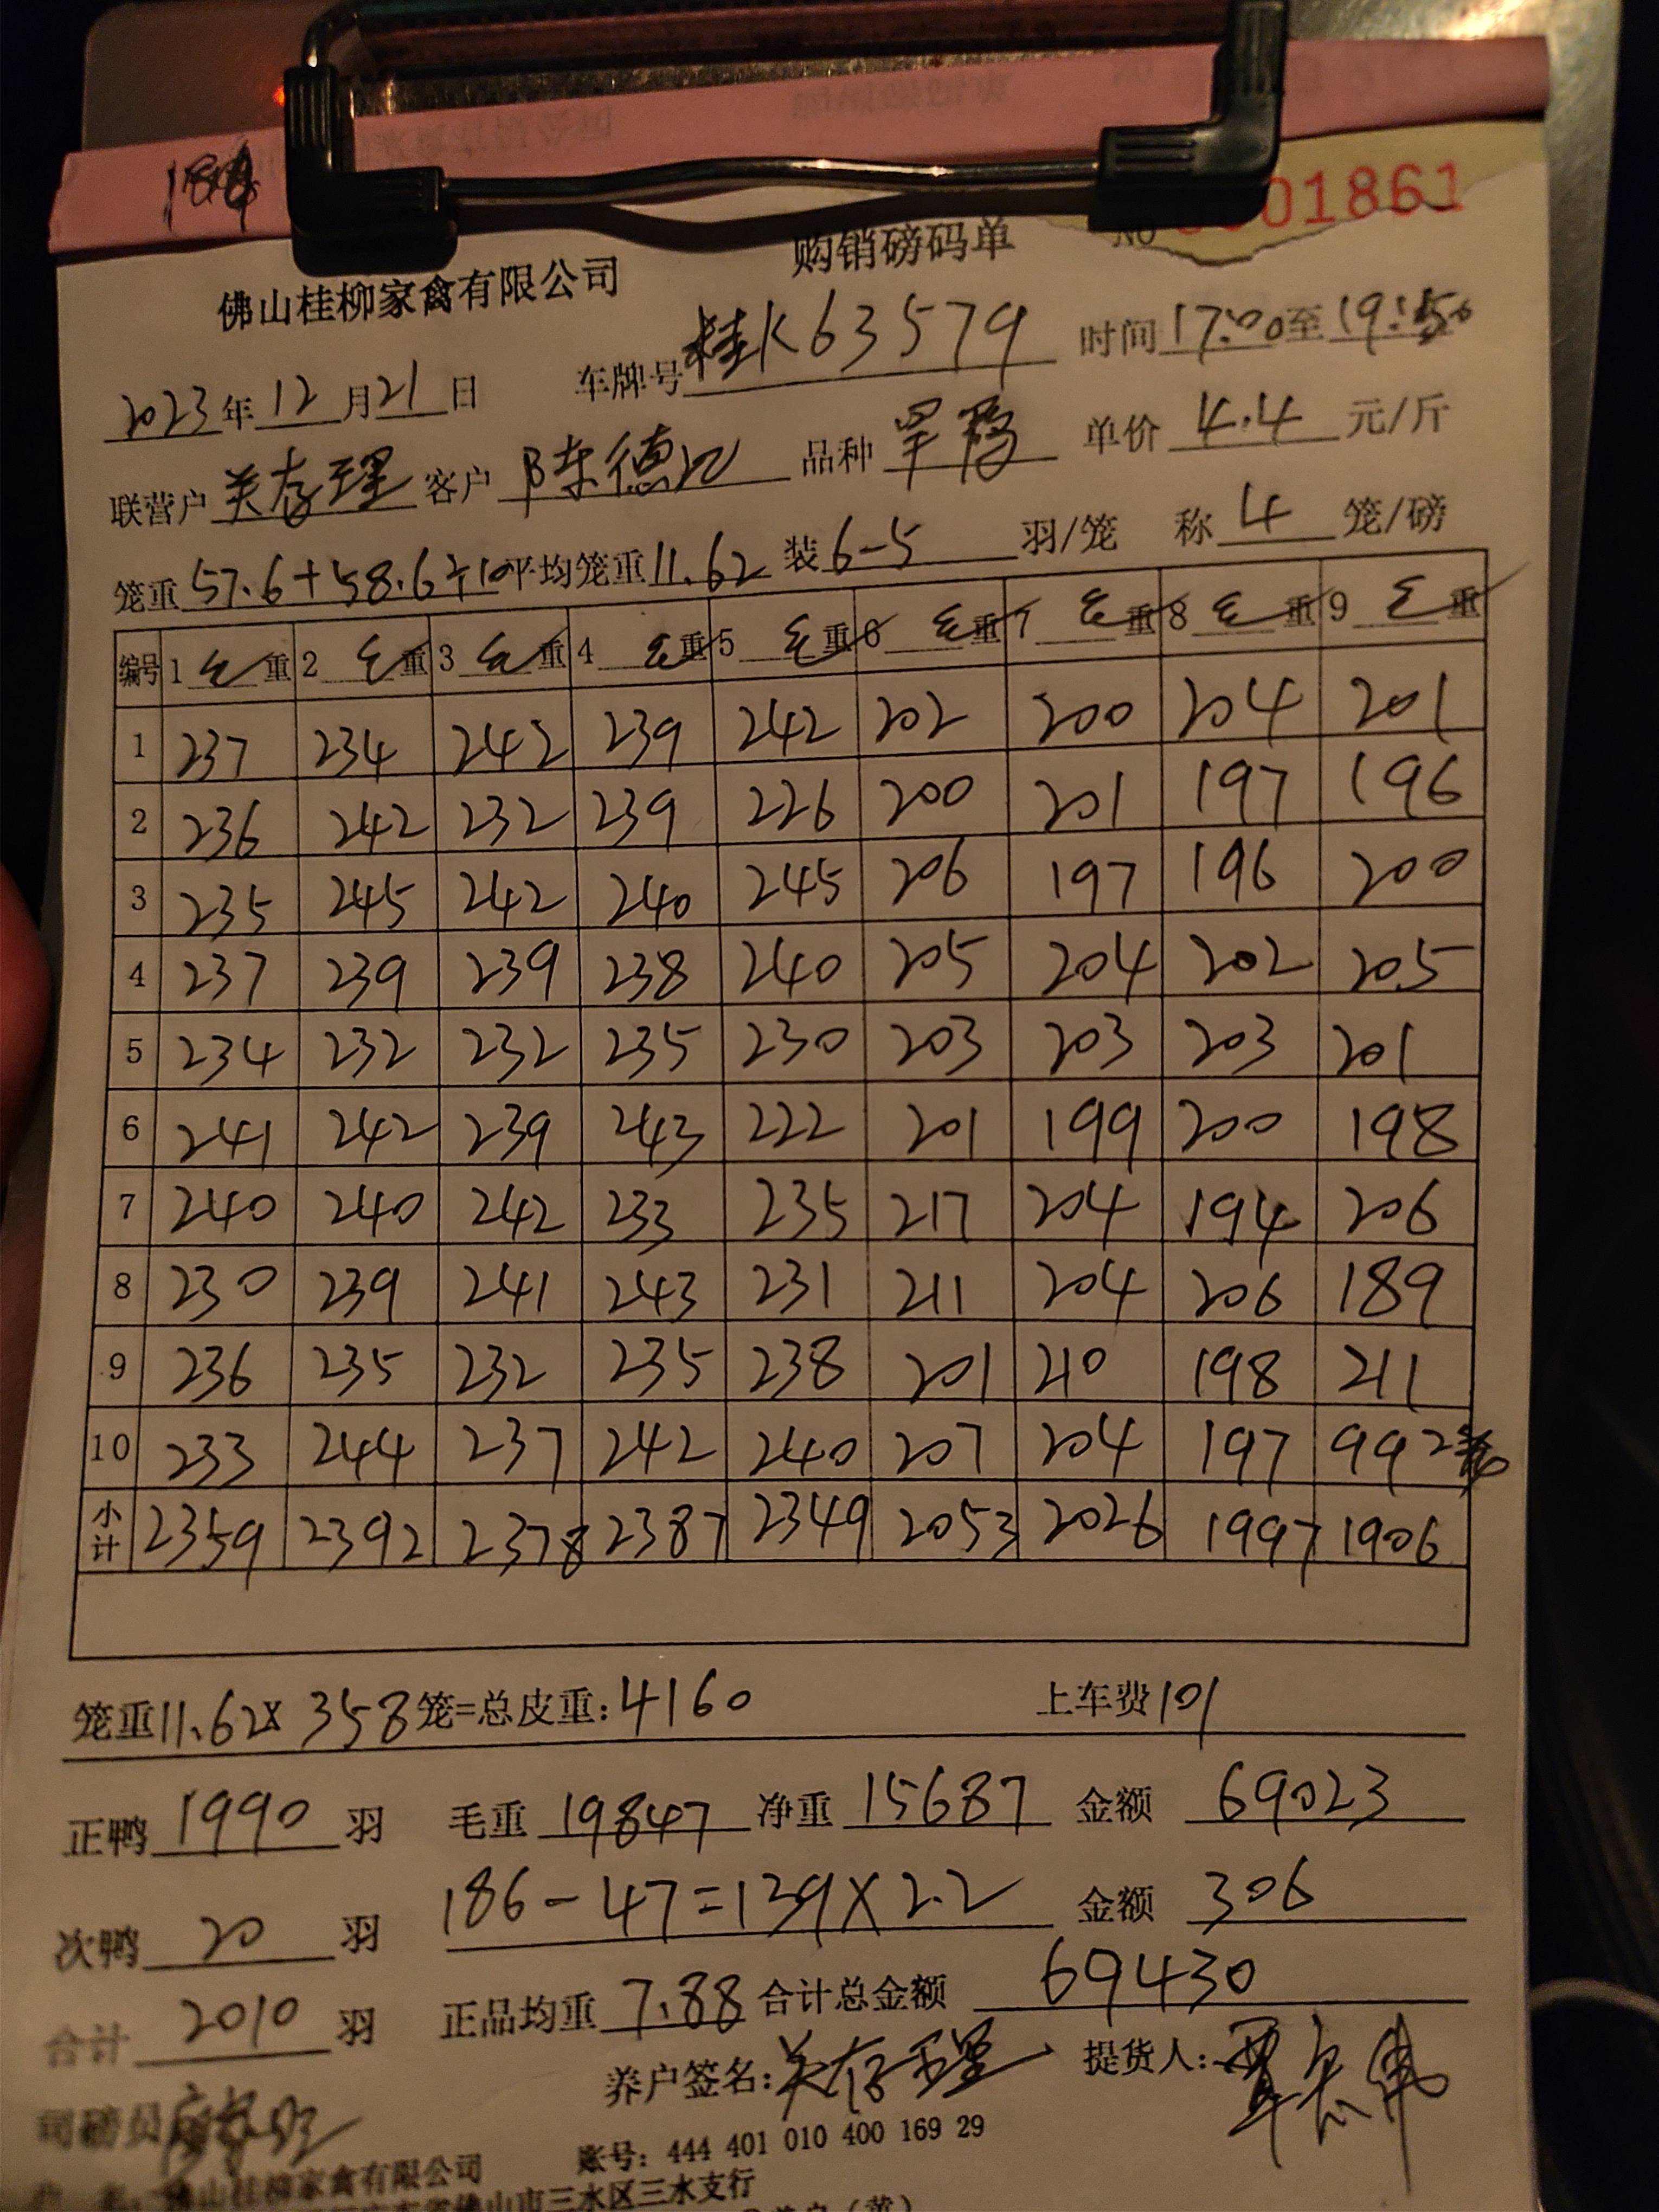 01861
购销磅码单
佛山桂柳家禽有限公司
2023年12月21日 车牌号桂K63579 时间17:00至19:50
联营户关存理 客户陈德 品种 单价4.4元/斤
笼重57.6+58.6÷10 平均笼重11.62 装6-5羽/笼 称4笼/磅
编号 1毛重 2毛重 3毛重 4毛重 5毛重 6毛重 7毛重 8毛重 9毛重
1 237 234 242 239 242 202 200 204 201
2 236 242 232 239 226 200 201 197 196
3 235 245 242 240 245 206 197 196 200
4 237 239 239 238 240 205 204 202 205
5 234 232 232 235 230 203 203 203 201
6 241 242 239 243 222 201 199 200 198
7 240 240 242 233 235 217 204 194 206
8 230 239 241 243 231 211 204 206 189
9 236 235 232 235 238 201 210 198 211
10 233 244 237 242 240 207 204 197 99 2笼
小计 2359 2392 2378 2387 2349 2053 2026 1997 1906
笼重11.62×358笼=总皮重:4160 上车费101
正鸭1990羽 毛重19847 净重15687 金额69023
次鸭20羽 186-47=139×2.2 金额306
合计2010羽 正品均重7.88 合计总金额69430
养户签名:关存理 提货人:覃
司磅员
账号: 444 401 010 400 169 29
佛山桂柳家禽有限公司
佛山市三水区三水支行
(黄)